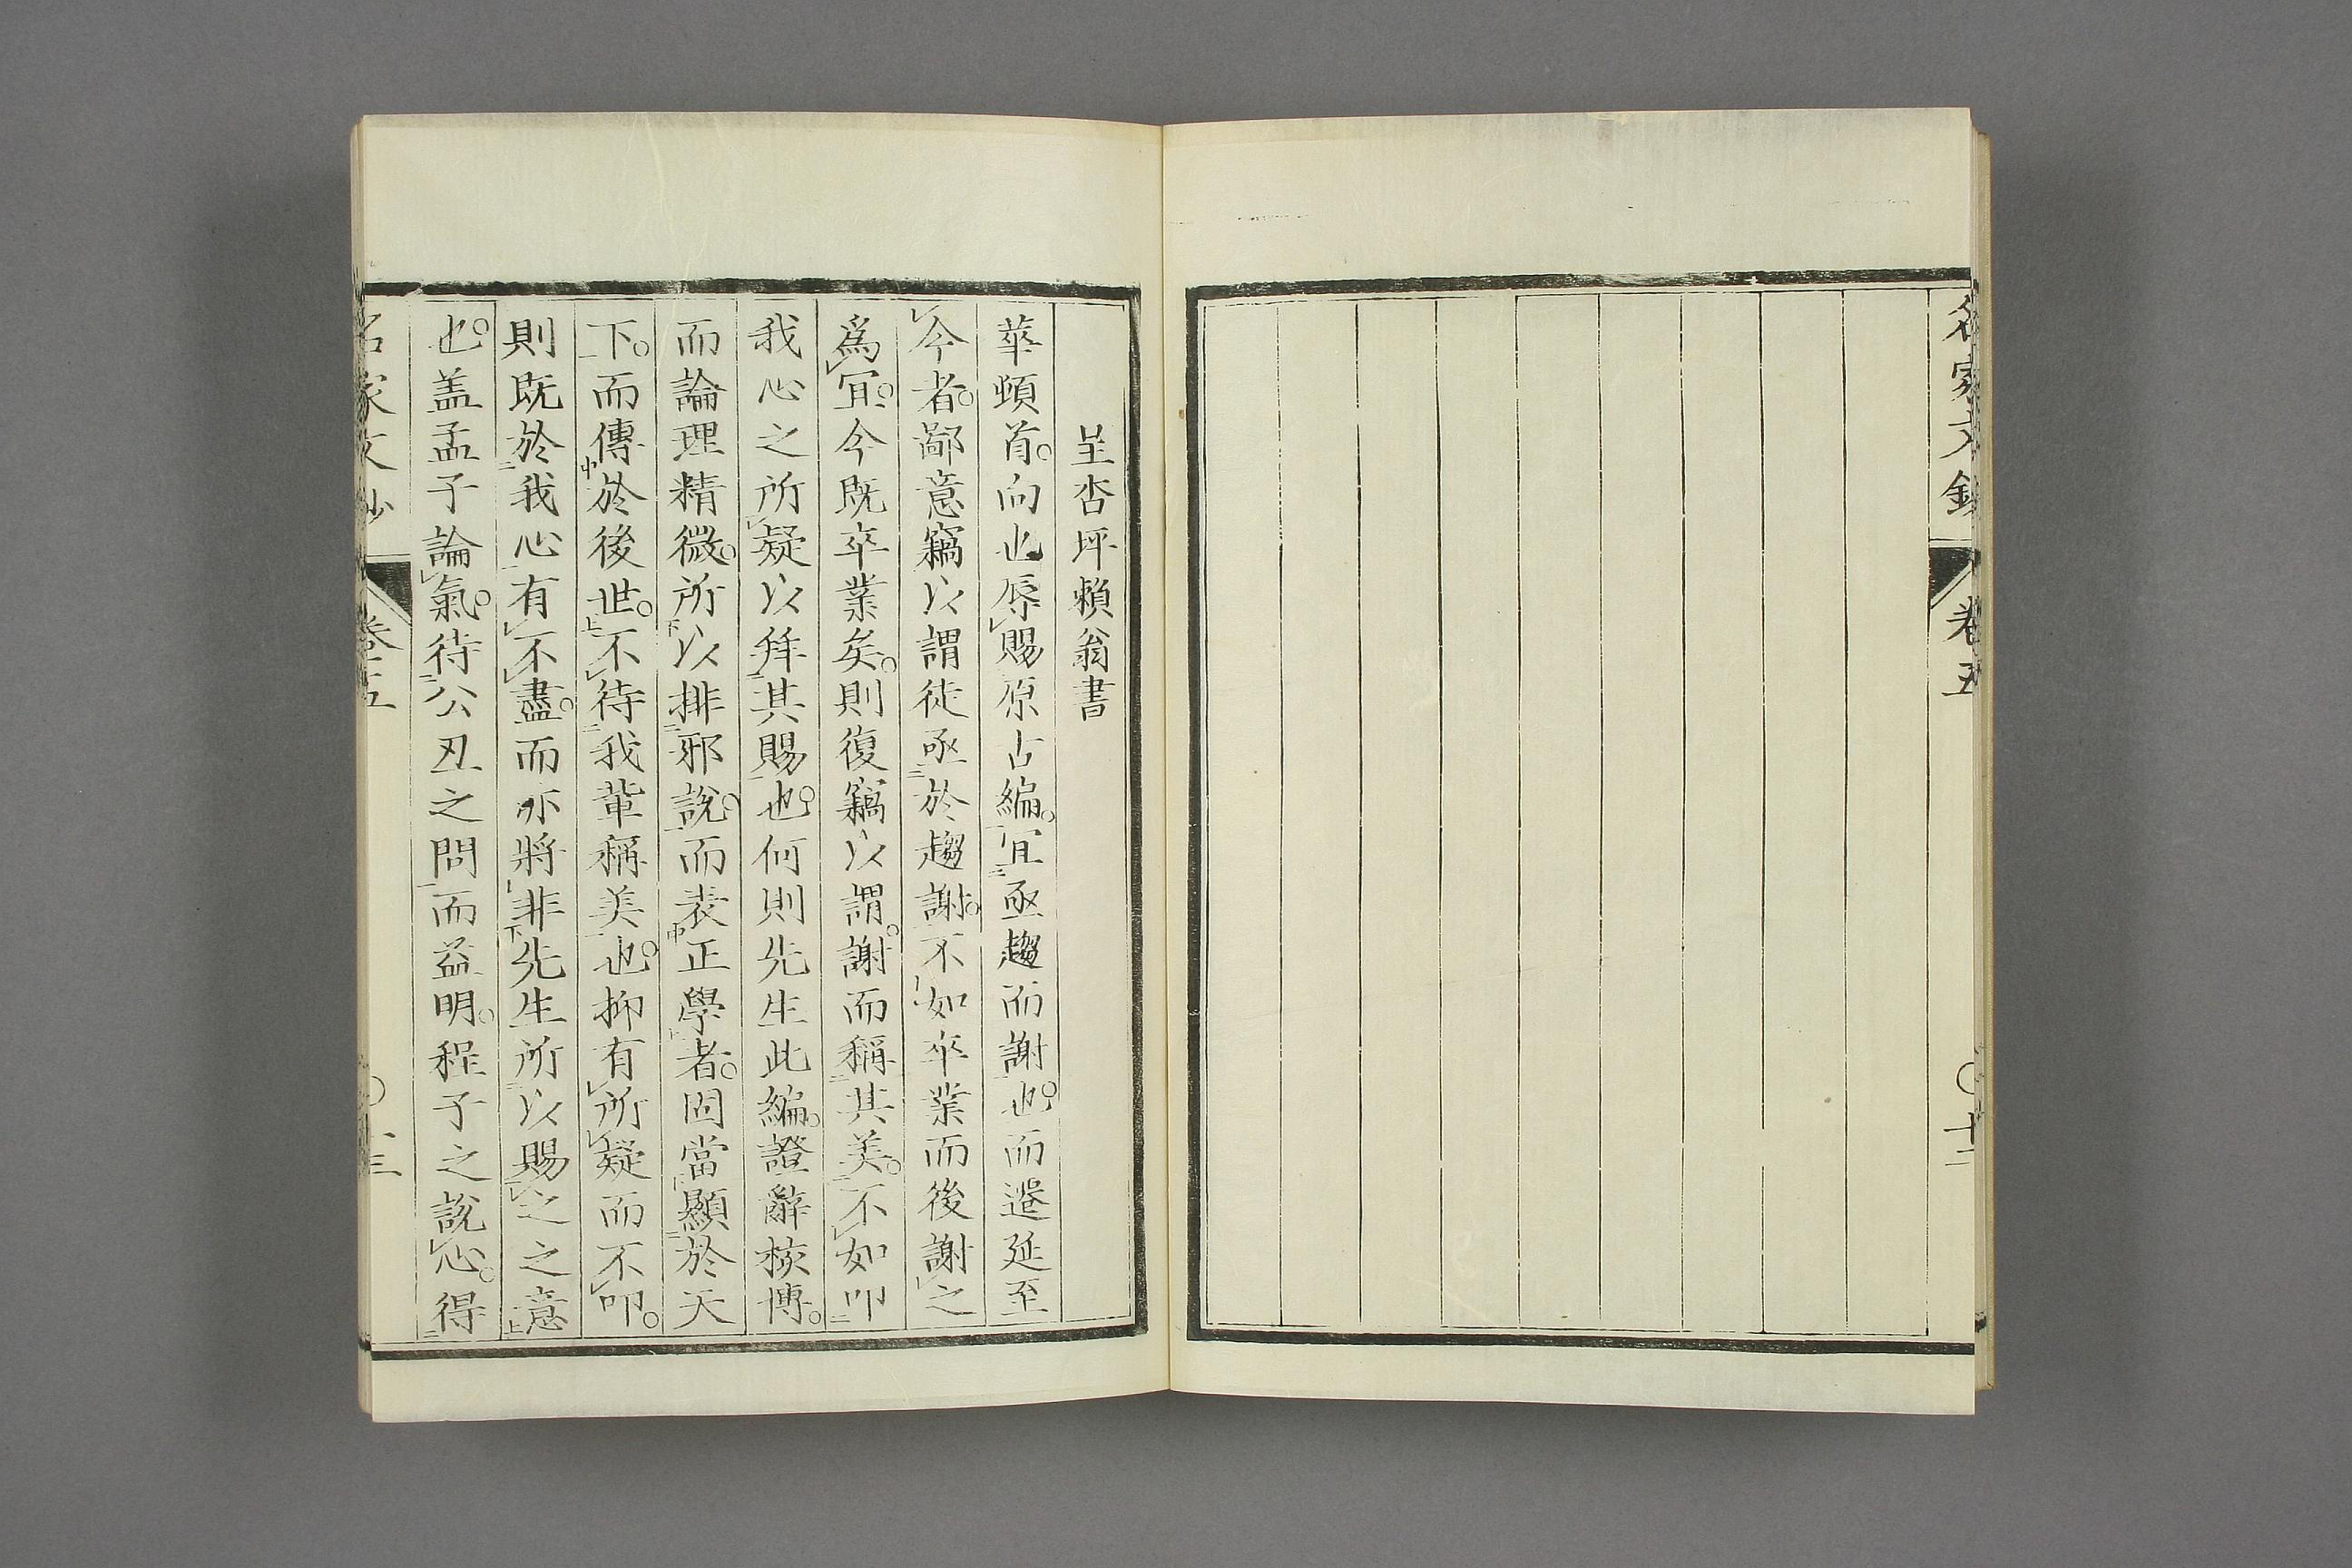 名家文鈔 卷五 〇十二
呈杏坪賴翁書
華頓首。向也辱賜原古編。宜亟趨而謝也。而遷延至
今者。鄙意竊以謂徒亟於趨謝。不如卒業而後謝之
爲宜。今既卒業矣。則復竊以謂。謝而稱其美。不如叩
我心之所疑以拜其賜也。何則先生此編。證辭核博。
而論理精微。所以排邪説。而表正學者。固當顯於天
下。而傳於後世。不待我輩稱美也。抑有所疑而不叩。
則既於我心有不盡。而亦將非先生所以賜之之意
也。盖孟子論氣。待公丑之問而益明。程子之説心。得
名家文鈔 卷五 〇十三